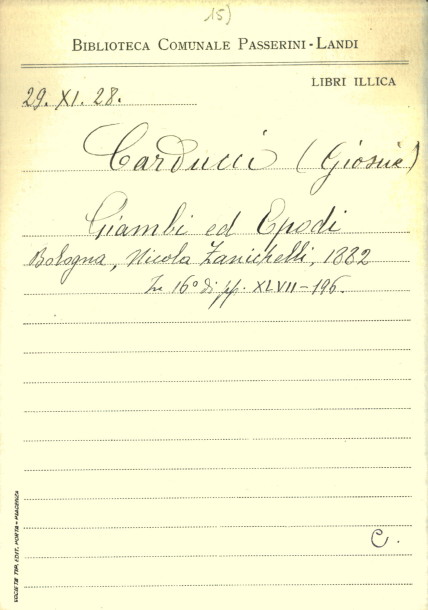 15)
BIBLIOTECA COMUNALE PASSERINI-LANDI
LIBRI ILLICA
29. XI. 28.
Carducci (Giosuè)
Giambi ed Epodi
Bologna, Nicola Zanichelli, 1882
In 16° di pp. XLVII-196.
C.
SOCIETÀ TIP. EDIT. PORTA - PIACENZA